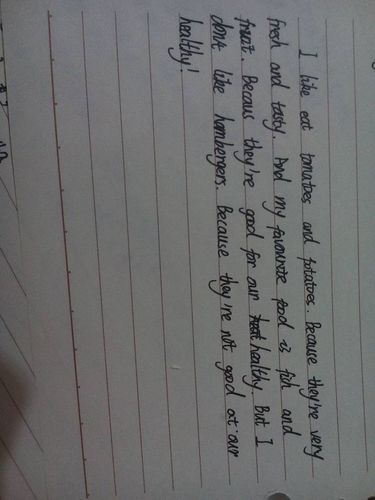 I like eat tomatoes and potatoes. Because they're very
fresh and tasty. And my favourite food is fish and
fruit. Becaus they're good for our healthy. But I
don't like hambergers. Because they're not good at our
healthy!